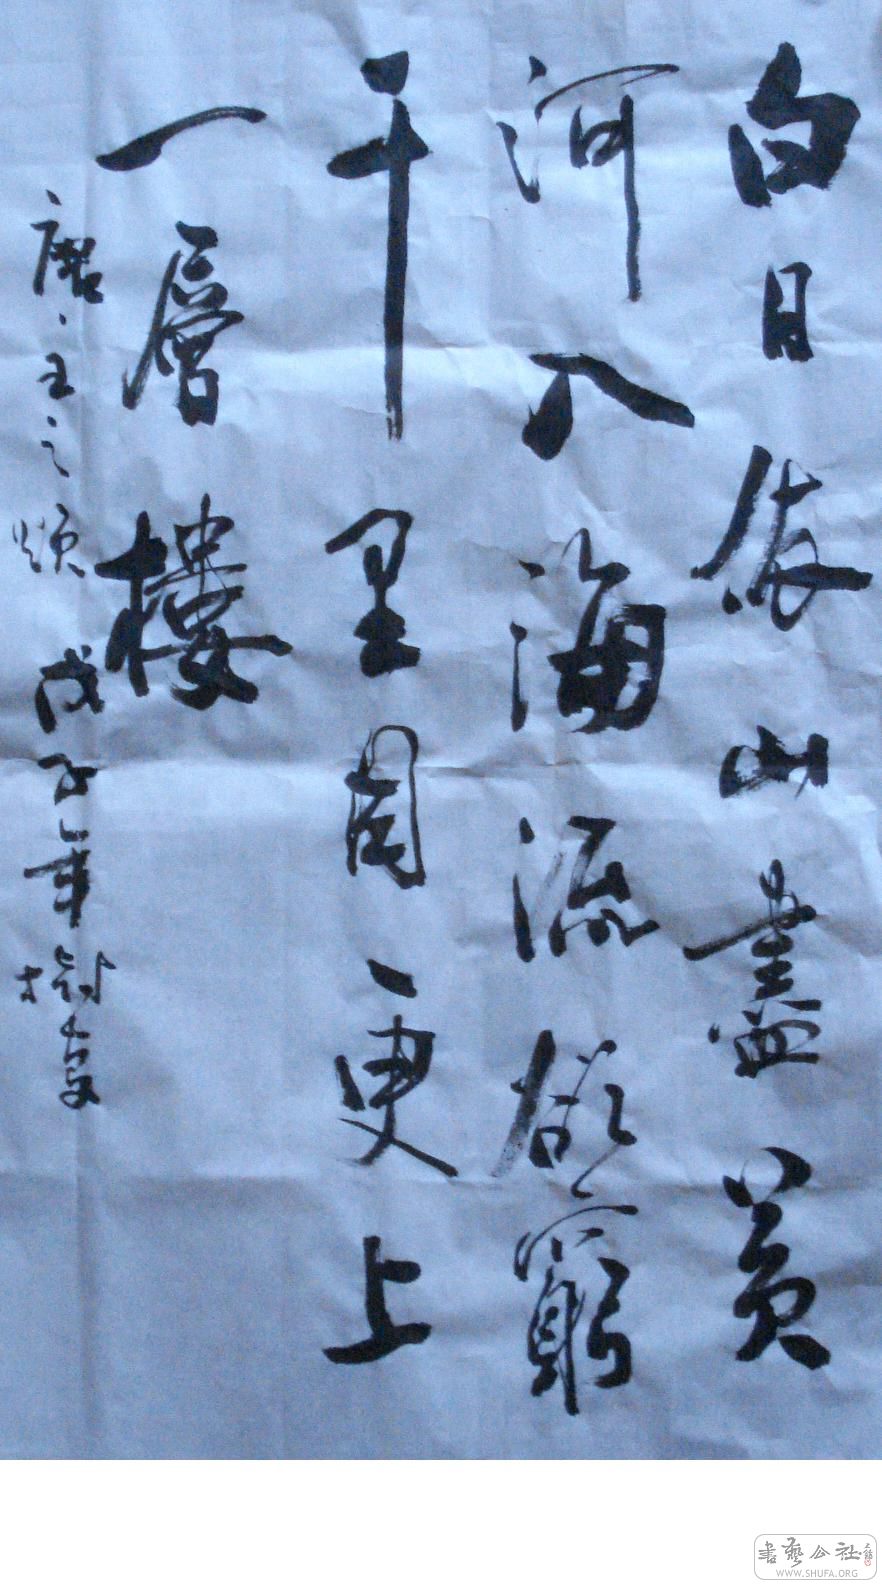 白日依山盡黃
河入海流欲窮
千里目更上
一層樓
唐王之渙 戊子年樹
書藝公社
WWW.SHUFA.ORG